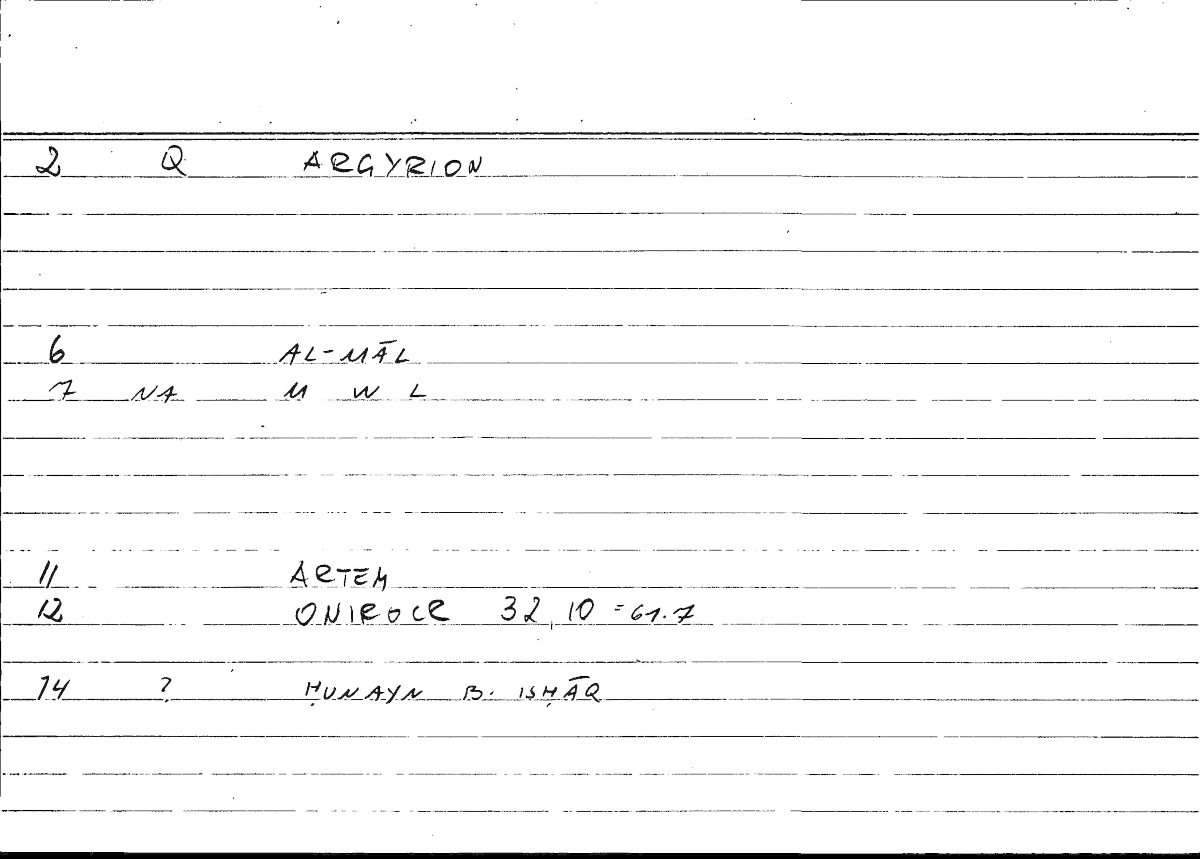 2 Q ARGYRION
6 AL-MĀL
7 NA M W L
11 ARTEM
12 ONIROCR 32,10 = 61.7
14 ? ḤUNAYN B. ISḤĀQ